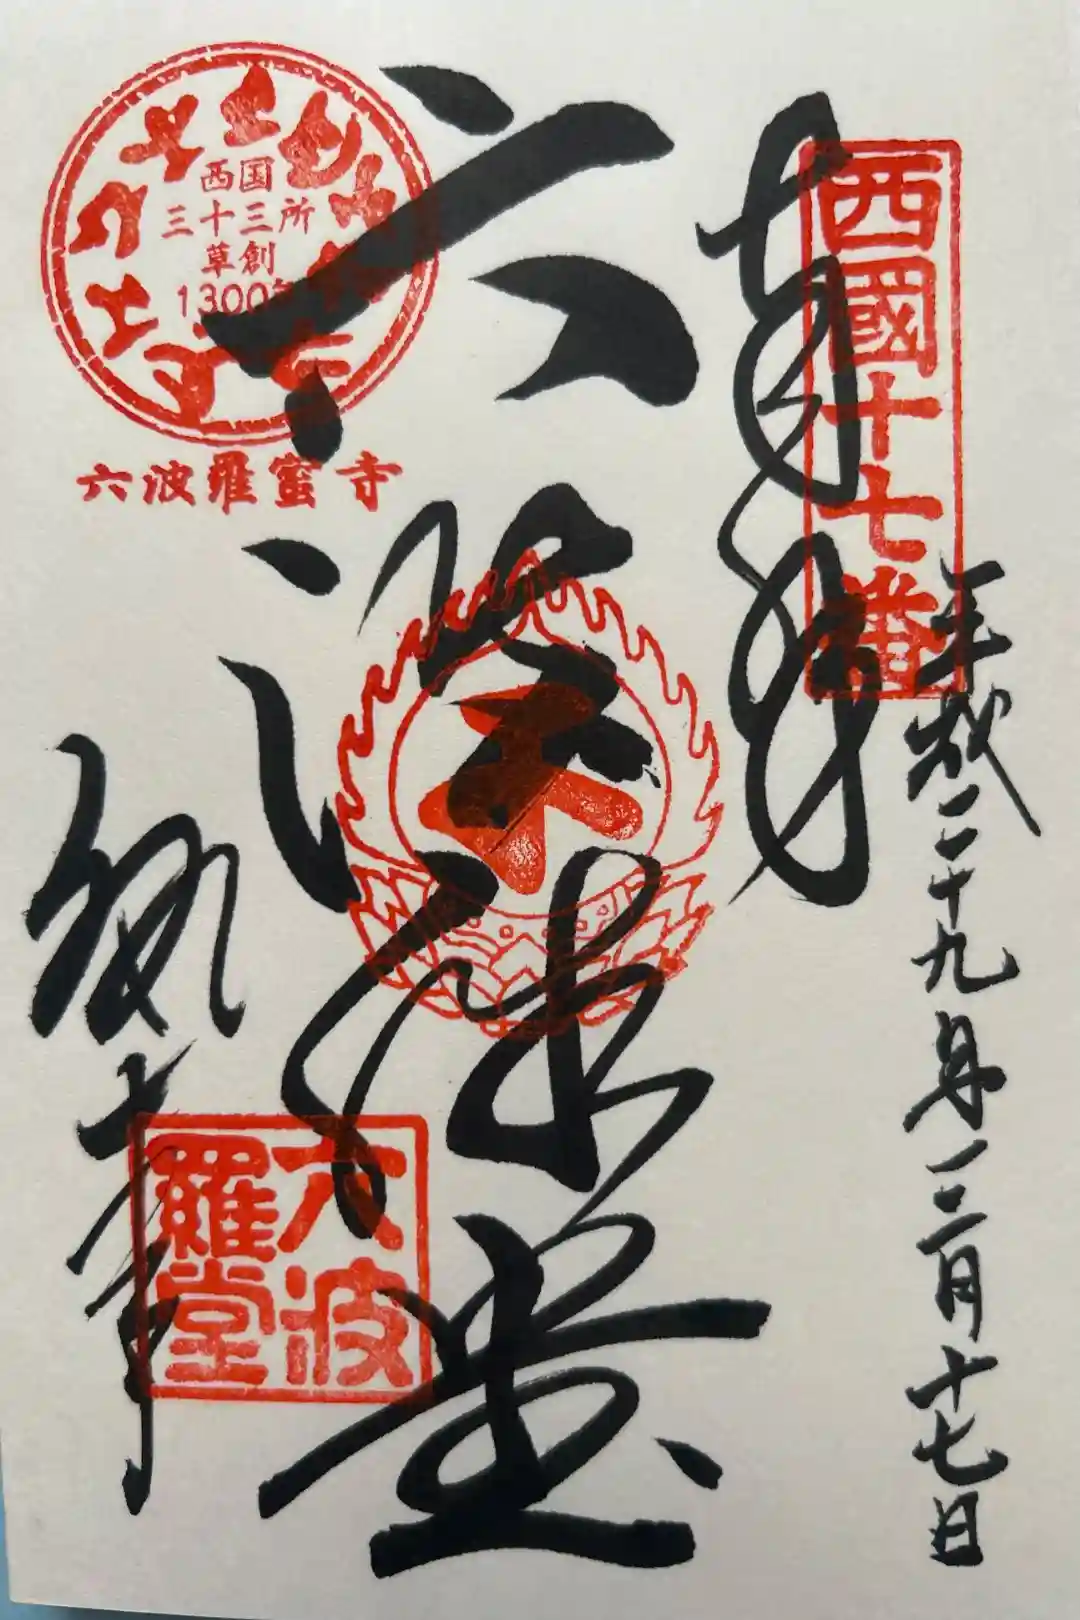 西國十七番
奉拝
平成二十九年十二月十七日
六波羅堂
西国
三十三所
草創
1300年
六波羅蜜寺
六波羅堂